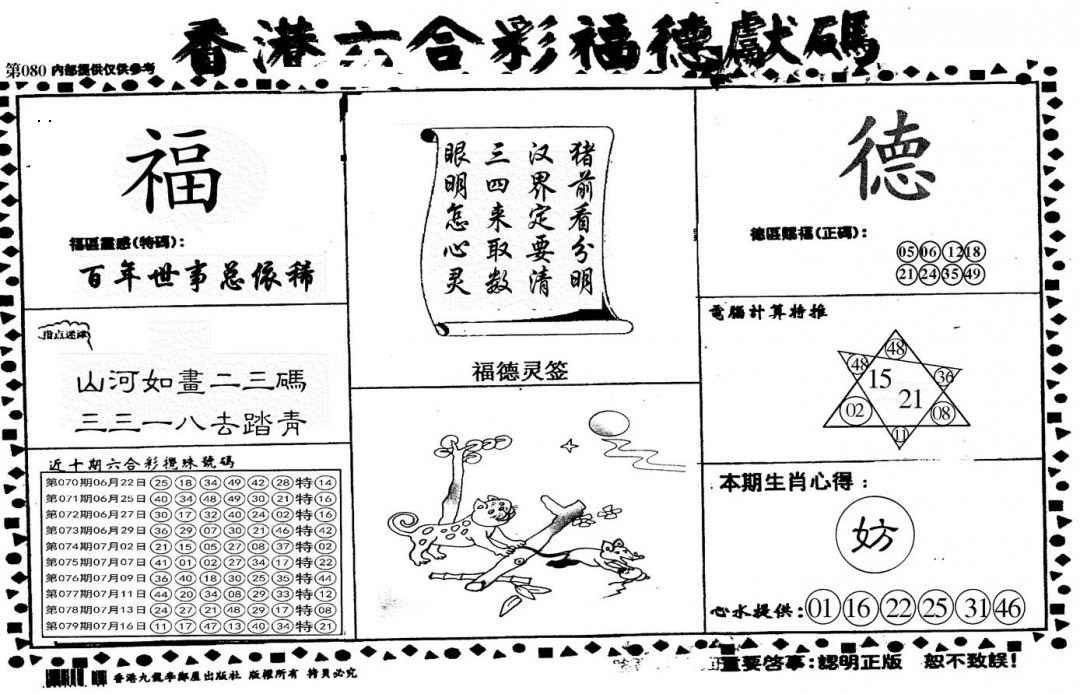 香港六合彩福德獻碼
第080 内部提供仅供参考
福
福區靈感(特碼):
百年世事总依稀
指点迷津
山河如畫二三碼
三三一八去踏青
近十期六合彩攪珠號碼
第070期06月22日 25 18 34 49 42 28 特 14
第071期06月25日 40 34 48 49 30 21 特 16
第072期06月27日 30 17 32 40 24 02 特 16
第073期06月29日 36 29 07 30 21 46 特 42
第074期07月02日 21 15 05 27 08 37 特 02
第075期07月07日 41 01 02 27 34 17 特 22
第076期07月09日 36 40 18 30 25 35 特 44
第077期07月11日 44 20 34 08 29 33 特 12
第078期07月13日 24 27 21 48 29 17 特 08
第079期07月16日 11 17 47 13 40 34 特 21
猪前看分明
汉界定要清
三四来取数
眼明怎心灵
福德灵签
德
德區賜福(正碼):
05 06 12 18
21 24 35 49
電腦計算特推
48
48 15 36
21
02 08
11
本期生肖心得:
妨
心水提供: 01 16 22 25 31 46
香港九龍李鄭屋出版社 版權所有 拷貝必究
重要啓事:認明正版 恕不致誤!